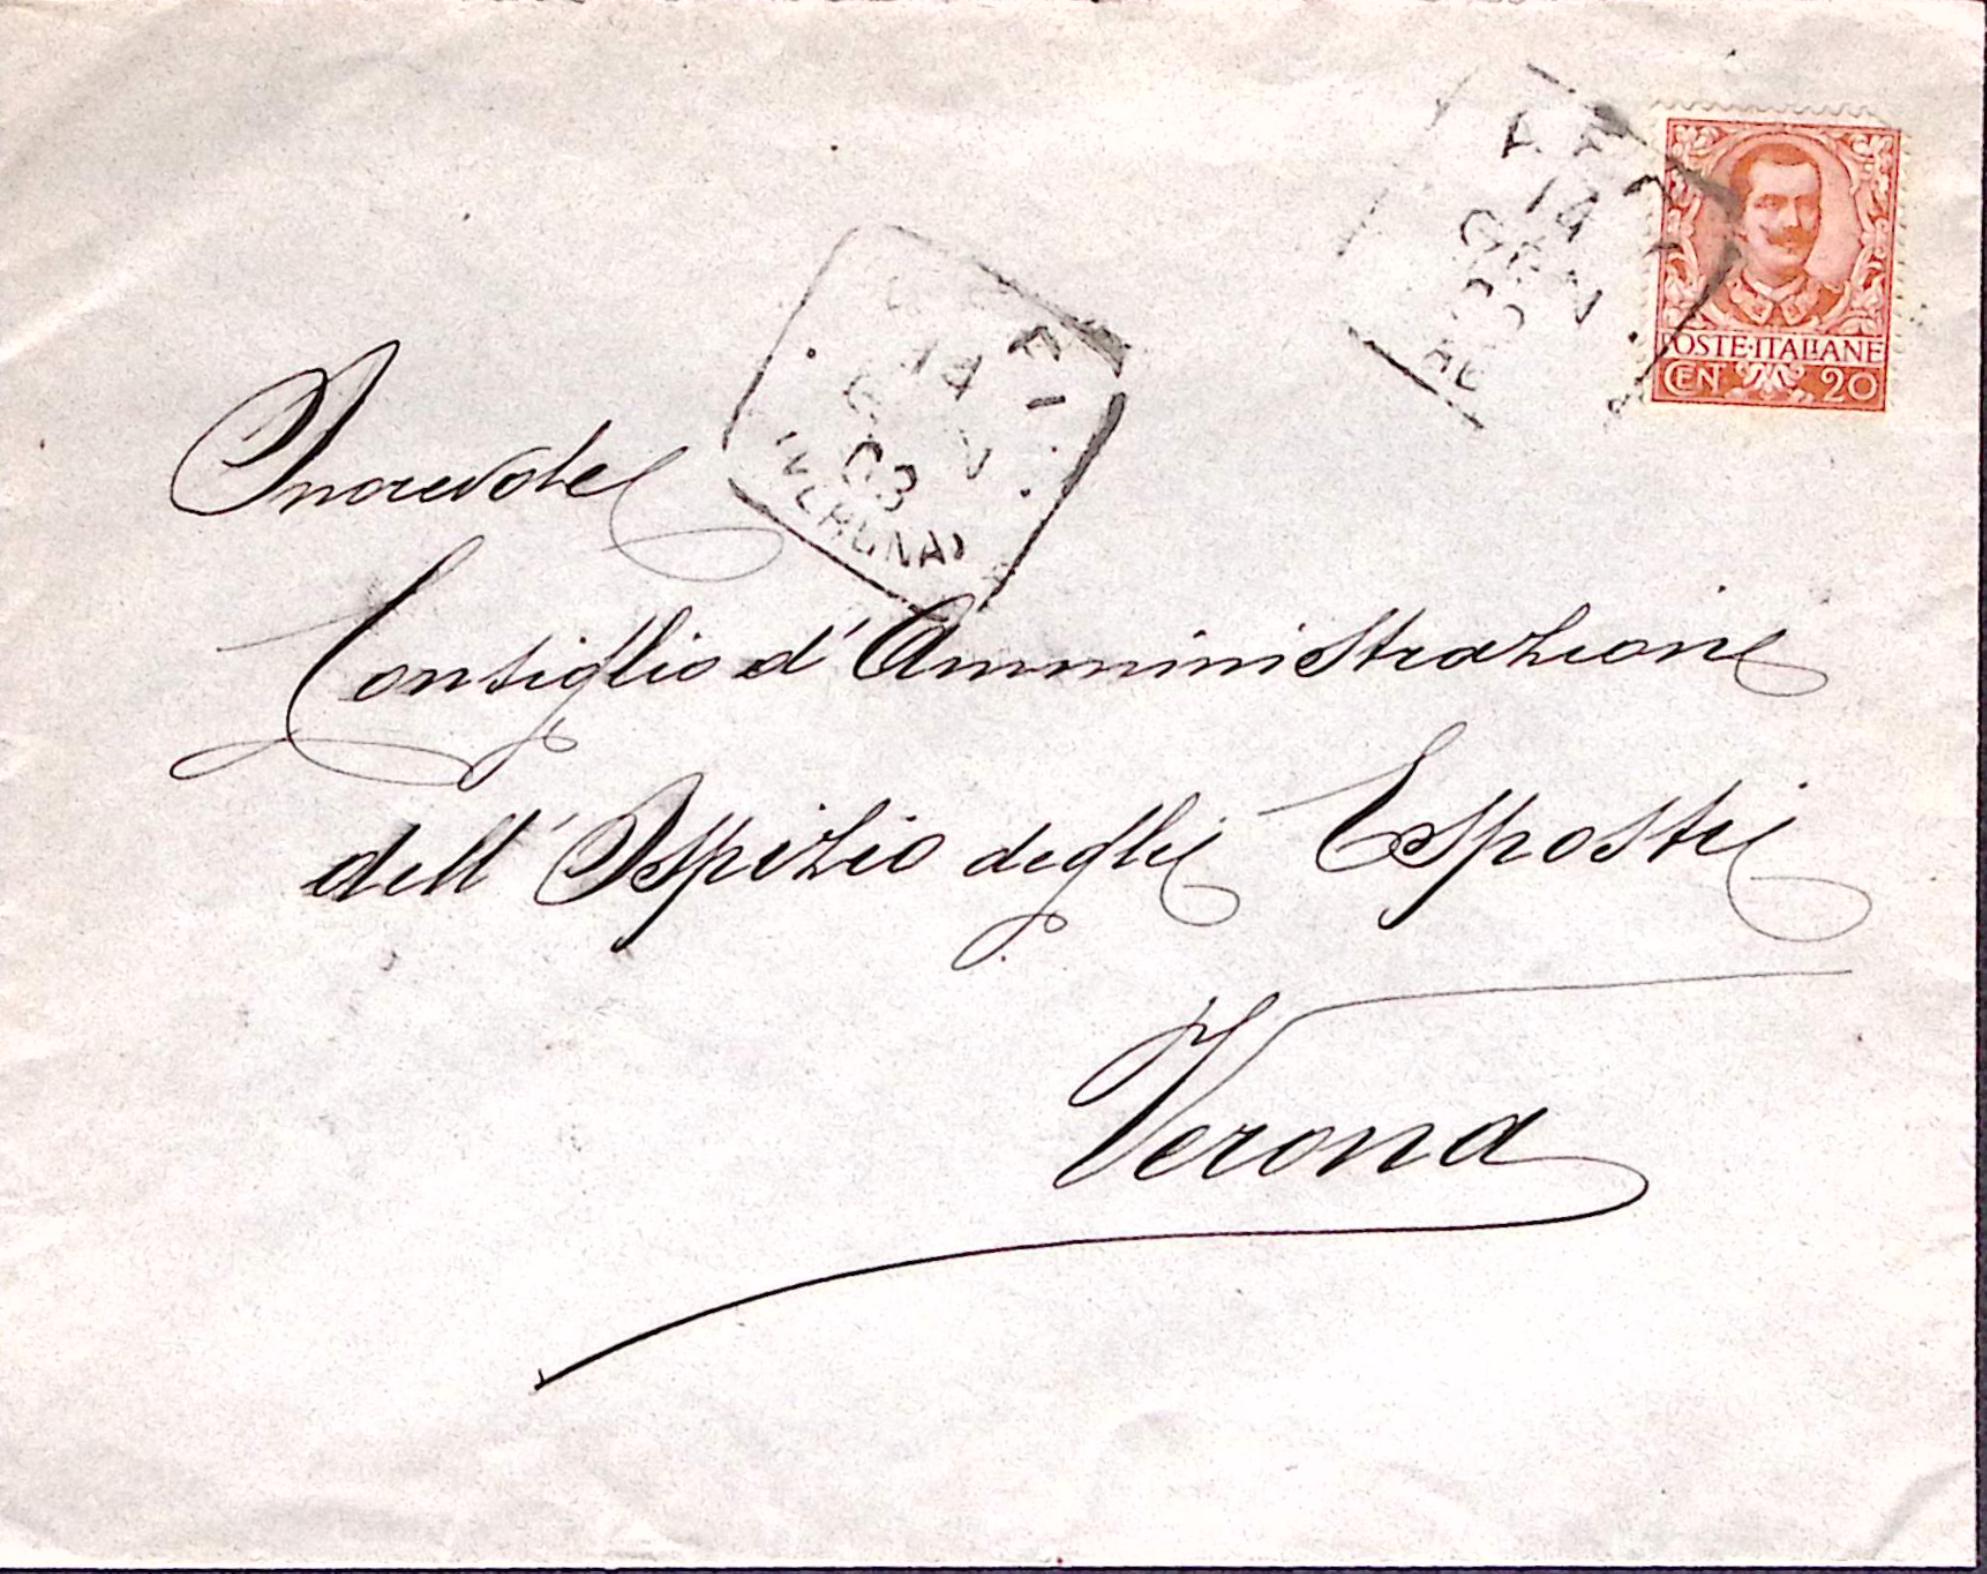 14
GEN
14
GEN
03
(VERONA)
POSTE·ITALIANE
CEN 20
Onorevole
Consiglio d'Amministrazione
dell'Ospizio degli Esposti
Verona